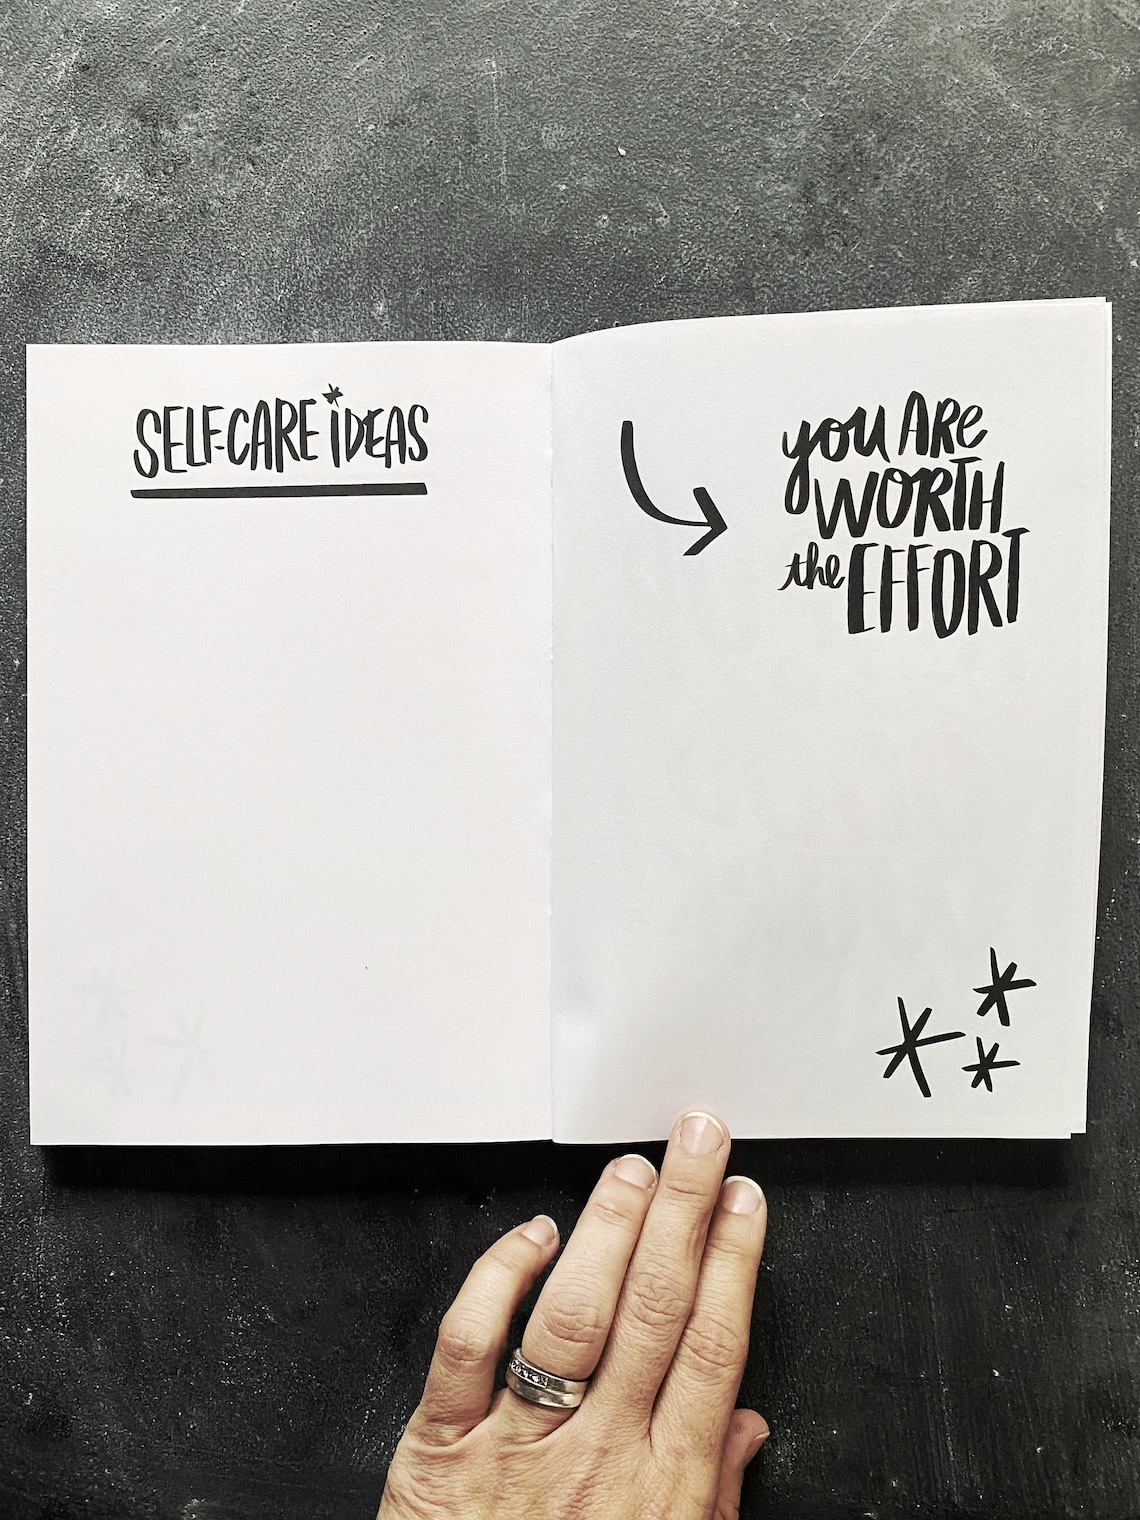 SELF-CARE iDEAS
you ARe
WORTH
the EFFORT